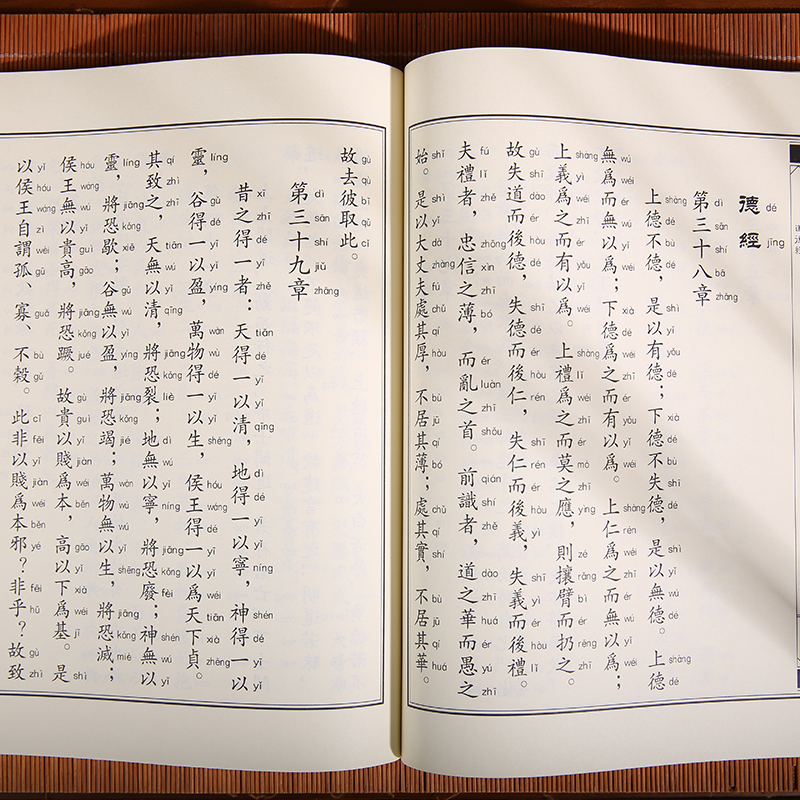 德經
第三十八章
上德不德，是以有德；下德不失德，是以無德。上德
無爲而無以爲；下德爲之而有以爲。上仁爲之而無以爲；
上義爲之而有以爲。上禮爲之而莫之應，則攘臂而扔之。
故失道而後德，失德而後仁，失仁而後義，失義而後禮。
夫禮者，忠信之薄，而亂之首。前識者，道之華而愚之
始。是以大丈夫處其厚，不居其薄；處其實，不居其華。
故去彼取此。
第三十九章
昔之得一者：天得一以清，地得一以寧，神得一以
靈，谷得一以盈，萬物得一以生，侯王得一以爲天下貞。
其致之，天無以清，將恐裂；地無以寧，將恐廢；神無以
靈，將恐歇；谷無以盈，將恐竭；萬物無以生，將恐滅；
侯王無以貴高，將恐蹶。故貴以賤爲本，高以下爲基。是
以侯王自謂孤、寡、不穀。此非以賤爲本邪？非乎？故致